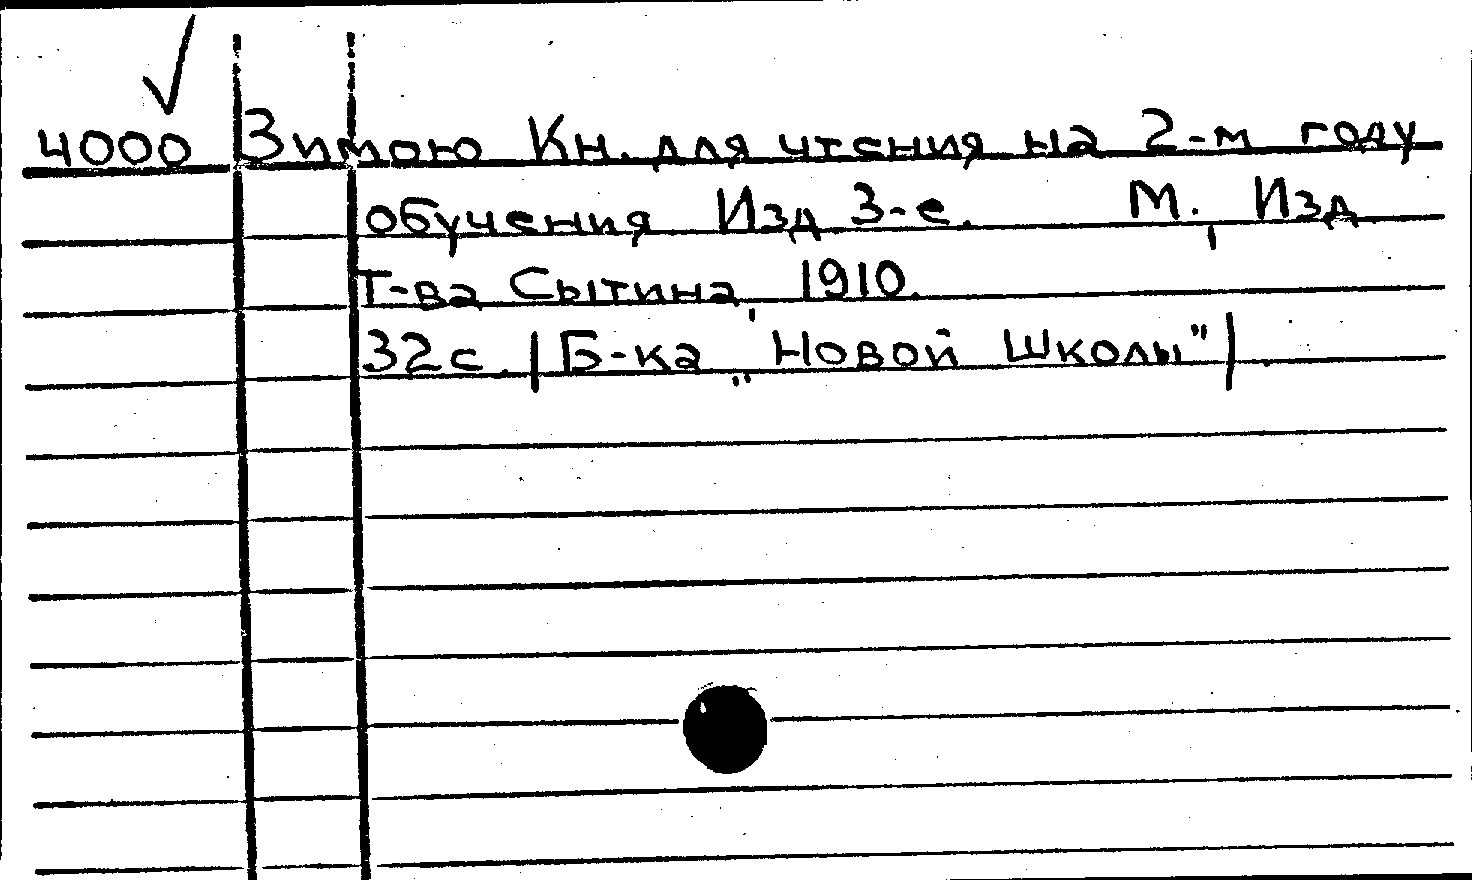 4000 Зимою Кн. для чтения на 2-м году
обучения Изд 3-е. М., Изд
Т-ва Сытина, 1910.
32с. |Б-ка „Новой Школы"|